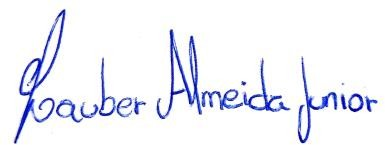 Glauber Almeida Junior